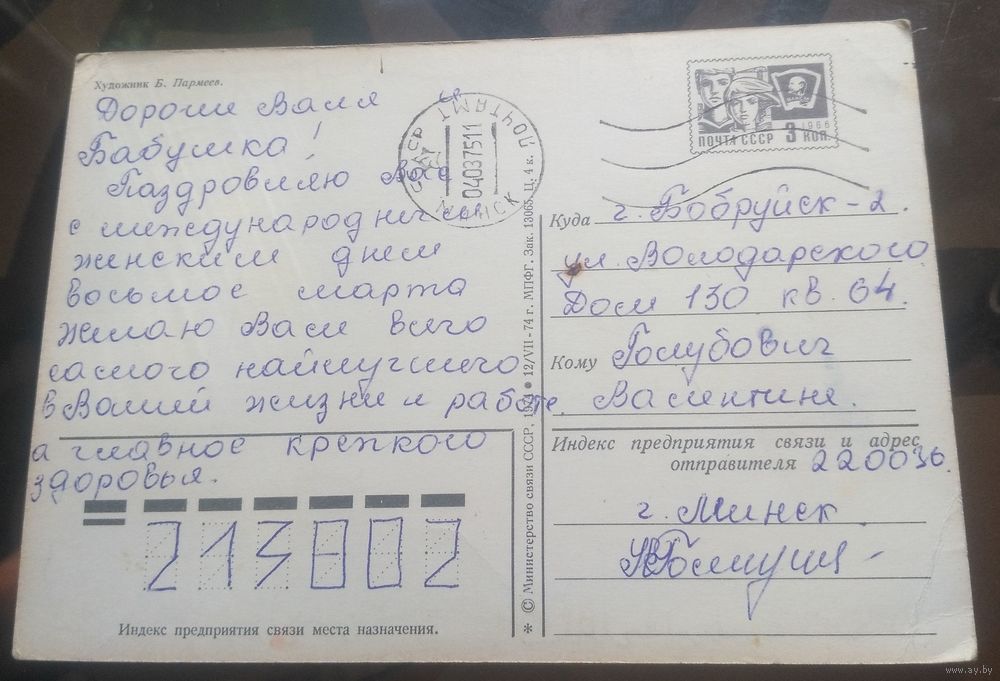 Художник Б. Пармеев.
Дороши Валя и
Бабушка!
Паздровляю Вас
с международным
женским днем
восьмое марта
желаю Вам всего
самого найлучшего
в Вашей жизни и работе.
а главное крепкого
здоровья.
213002
Индекс предприятия связи места назначения.
* © Министерство связи СССР, 1974 • 12/VII-74 г. МПФГ. Зак. 13065. Ц. 4 к.
ПОЧТАМТ
04037511
1966
ПОЧТА СССР 3 КОП.
Куда г. Бобруйск-2.
ул. Володарского
Дом 130 кв. 64.
Кому Голубович
Валентине.
Индекс предприятия связи и адрес
отправителя 220036.
г. Минск
www.ay.by